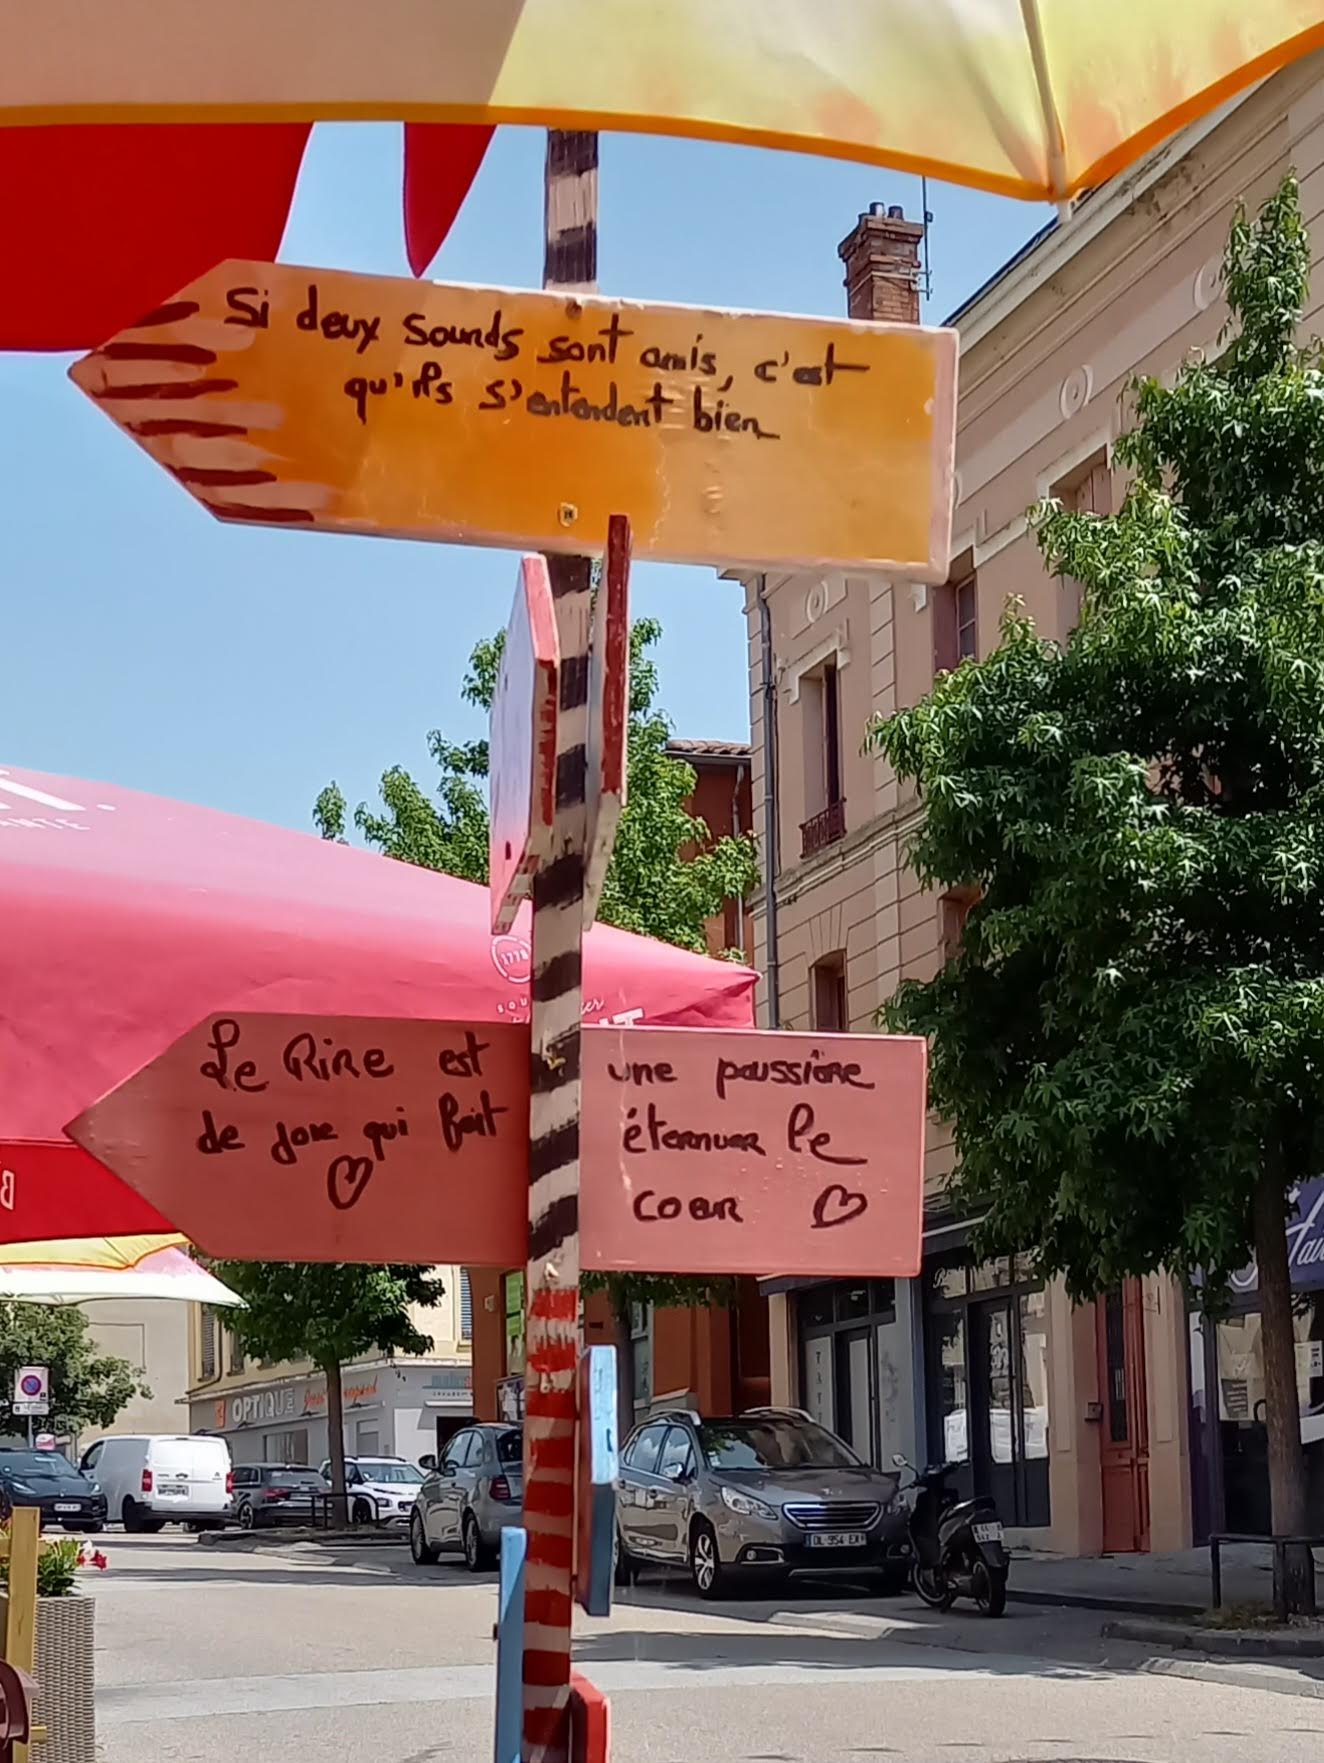 Si deux sourds sont amis, c'est
qu'ils s'entendent bien
1778
Le Rire est une poussière
de joie qui fait éternuer le
coeur
OPTIQUE
DL-954-EX